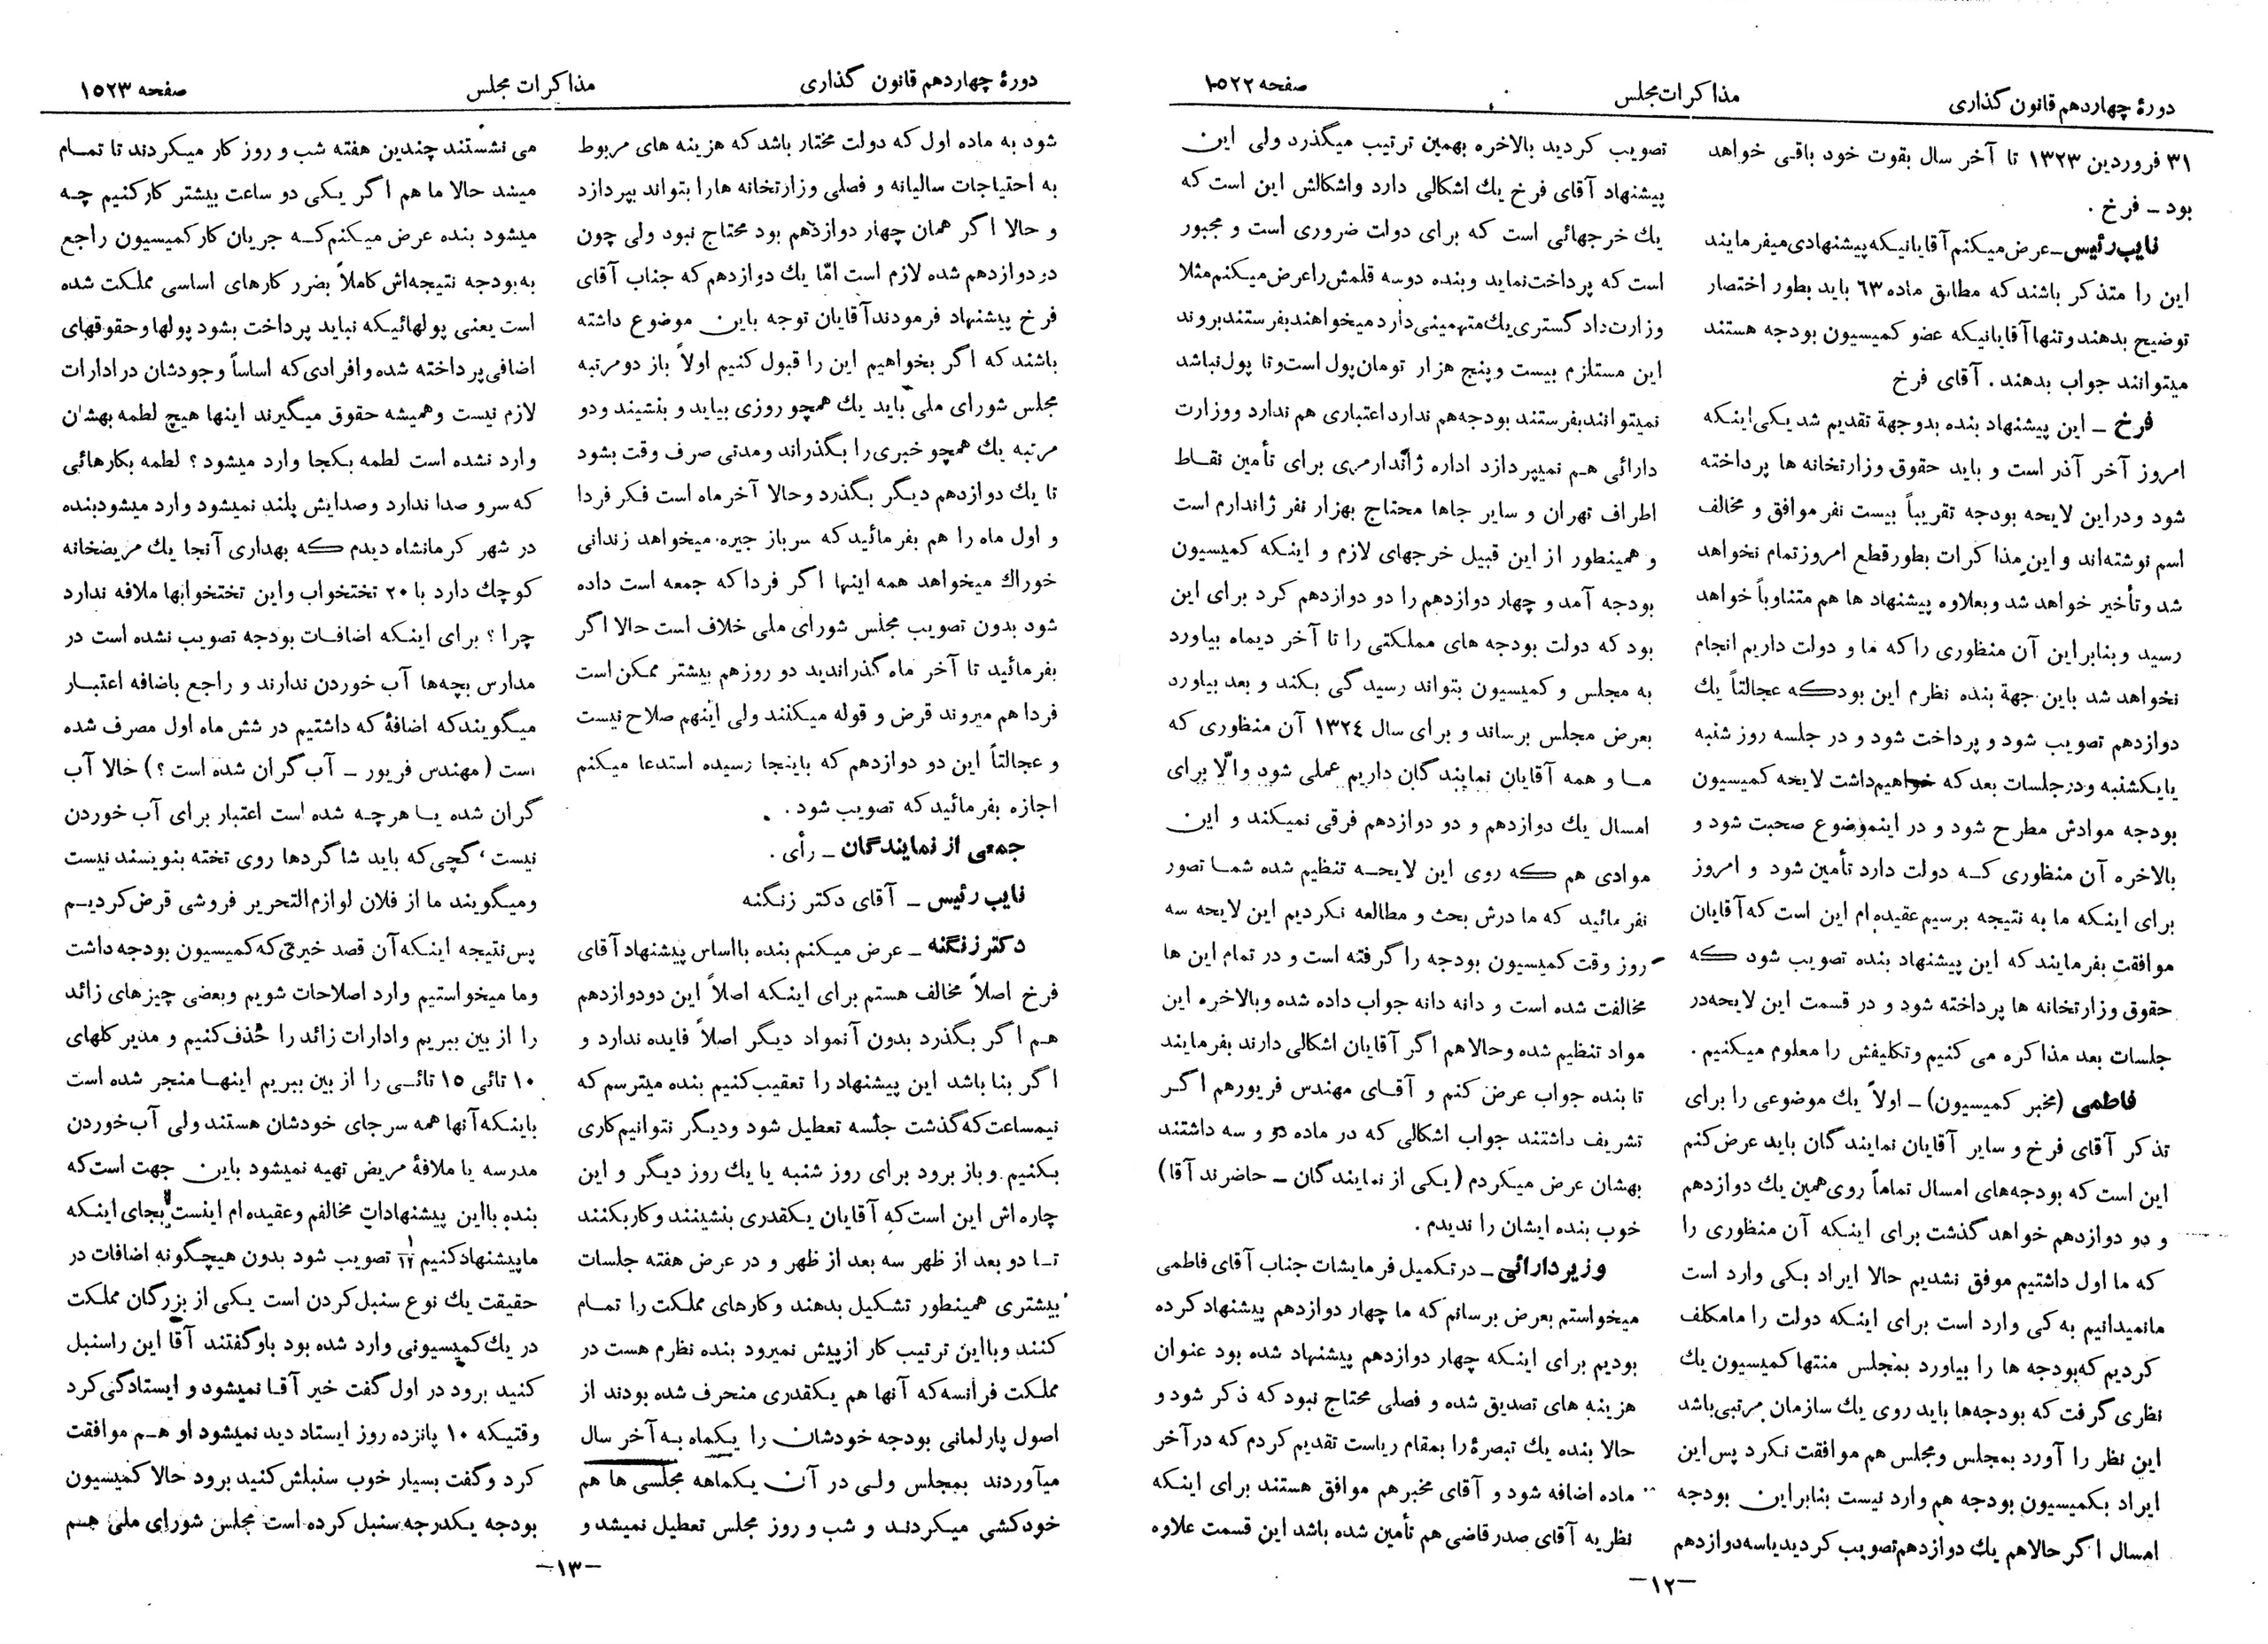 دورهٔ چهاردهم قانون گذاری
مذاکرات مجلس
صفحه ۱۵۲۲
۳۱ فروردین ۱۳۲۳ تا آخر سال بقوت خود باقی خواهد
بود ــ فرخ .
نایب رئیس ــ عرض میکنم آقایانیکه پیشنهادی میفرمایند
این را متذکر باشند که مطابق ماده ۶۳ باید بطور اختصار
توضیح بدهند و تنها آقایانیکه عضو کمیسیون بودجه هستند
میتوانند جواب بدهند . آقای فرخ
فرخ ــ این پیشنهاد بنده بدوجهة تقدیم شد یکی اینکه
امروز آخر آذر است و باید حقوق وزارتخانه ها پرداخته
شود ودراین لایحه بودجه تقریباً بیست نفر موافق و مخالف
اسم نوشته‌اند و این مذاکرات بطور قطع امروز تمام نخواهد
شد و تأخیر خواهد شد و بعلاوه پیشنهاد ها هم متناوباً خواهد
رسید و بنابراین آن منظوری را که ما و دولت داریم انجام
نخواهد شد باین جهة بنده نظرم این بود که عجالتاً یك
دوازدهم تصویب شود و پرداخت شود و در جلسه روز شنبه
یا یکشنبه و در جلسات بعد که خواهیم داشت لایحه کمیسیون
بودجه موادش مطرح شود و در اینموضوع صحبت شود و
بالاخره آن منظوری کـه دولت دارد تأمین شود و امروز
برای اینکه ما به نتیجه برسیم عقیده‌ام این است که آقایان
موافقت بفرمایند که این پیشنهاد بنده تصویب شود که
حقوق وزارتخانه ها پرداخته شود و در قسمت این لایحه‌در
جلسات بعد مذاکره می کنیم وتکلیفش را معلوم میکنیم .
فاطمی (مخبر کمیسیون) ــ اولاً یك موضوعی را برای
تذکر آقای فرخ و سایر آقایان نمایندگان باید عرض کنم
این است که بودجه‌های امسال تماماً روی همین یك دوازدهم
و دو دوازدهم خواهد گذشت برای اینکه آن منظوری را
که ما اول داشتیم موفق نشدیم حالا ایراد بکی وارد است
مانمیدانیم به کی وارد است برای اینکه دولت را مامکلف
کردیم که بودجه ها را بیاورد بمجلس منتها کمیسیون یك
نظری گرفت که بودجه‌ها باید روی یك سازمان مرتبی باشد
این نظر را آورد بمجلس و مجلس هم موافقت نکرد پس این
ایراد بکمیسیون بودجه هم وارد نیست بنابراین بودجه
امسال اگر حالاهم یك دوازدهم تصویب کردید یاسه دوازدهم
تصویب کردید بالاخره بهمین ترتیب میگذرد ولی این
پیشنهاد آقای فرخ یك اشکالی دارد واشکالش این است که
یك خرجهائی است که برای دولت ضروری است و مجبور
است که پرداخت نماید و بنده دوسه قلمش را عرض میکنم مثلا
وزارت دادگستری یك متهمینی دارد میخواهند بفرستند بروند
این مستلزم بیست وپنج هزار تومان پول است و تا پول نباشد
نمیتوانند بفرستند بودجه‌هم ندارد اعتباری هم ندارد ووزارت
دارائی هـم نمیپردازد اداره ژاندارمری برای تأمین نقـاط
اطراف تهران و سایر جاها محتاج بهزار نفر ژاندارم است
و همینطور از این قبیل خرجهای لازم و اینکه کمیسیون
بودجه آمد و چهار دوازدهم را دو دوازدهم کرد برای این
بود که دولت بودجه های مملکتی را تا آخر دیماه بیاورد
به مجلس و کمیسیون بتواند رسیدگی بکند و بعد بیاورد
بعرض مجلس برساند و برای سال ۱۳۲۴ آن منظوری که
مـا و همه آقایان نمایندگان داریم عملی شود والّا برای
امسال یك دوازدهم و دو دوازدهم فرقی نمیکند و این
موادی هم که روی این لایحـه تنظیم شده شمـا تصور
نفرمائید که ما درش بحث و مطالعه نکردیم این لایحه سه
روز وقت کمیسیون بودجه را گرفته است و در تمام این ها
مخالفت شده است و دانه دانه جواب داده شده وبالاخره این
مواد تنظیم شده وحالاهم اگر آقایان اشکالی دارند بفرمایند
تا بنده جواب عرض کنم و آقـای مهندس فریورهم اگـر
تشریف داشتند جواب اشکالی که در ماده دو و سه داشتند
بهشان عرض میکردم (یکی از نمایندگان ــ حاضرند آقا)
خوب بنده ایشان را ندیدم .
وزیردارائی ــ درتکمیل فرمایشات جناب آقای فاطمی
میخواستم بعرض برسانم که ما چهار دوازدهم پیشنهاد کرده
بودیم برای اینکه چهار دوازدهم پیشنهاد شده بود عنوان
هزینه های تصدیق شده و فصلی محتاج نبود که ذکر شود و
حالا بنده یك تبصرهٔ را بمقام ریاست تقدیم کردم که درآخر
ماده اضافه شود و آقای مخبرهم موافق هستند برای اینکه
نظریه آقای صدرقاضی هم تأمین شده باشد این قسمت علاوه
ــ۱۲ــ
دورهٔ چهاردهم قانون گذاری
مذاکرات مجلس
صفحه ۱۵۲۳
شود به ماده اول که دولت مختار باشد که هزینه های مربوط
به احتیاجات سالیانه و فصلی وزارتخانه هارا بتواند بپردازد
و حالا اگر همان چهار دوازدهم بود محتاج نبود ولی چون
دو دوازدهم شده لازم است امّا یك دوازدهم که جناب آقای
فرخ پیشنهاد فرمودند آقایان توجه باین موضوع داشته
باشند که اگر بخواهیم این را قبول کنیم اولاً باز دومرتبه
مجلس شورای ملی باید یك همچو روزی بیاید و بنشیند ودو
مرتبه یك همچو خبری را بگذراند ومدتی صرف وقت بشود
تا یك دوازدهم دیگر بگذرد وحالا آخر ماه است فکر فردا
و اول ماه را هم بفرمائید که سرباز جیره میخواهد زندانی
خوراك میخواهد همه اینها اگر فردا که جمعه است داده
شود بدون تصویب مجلس شورای ملی خلاف است حالا اگر
بفرمائید تا آخر ماه گذراندید دو روزهم بیشتر ممکن است
فردا هم میروند قرض و قوله میکنند ولی اینهم صلاح نیست
و عجالتاً این دو دوازدهم که باینجا رسیده استدعا میکنم
اجازه بفرمائید که تصویب شود .
جمعی از نمایندگان ــ رأی .
نایب رئیس ــ آقای دکتر زنگنه
دکتر زنگنه ــ عرض میکنم بنده بااساس پیشنهاد آقای
فرخ اصلاً مخالف هستم برای اینکه اصلاً این دودوازدهم
هـم اگر بگذرد بدون آنمواد دیگر اصلاً فایده ندارد و
اگر بنا باشد این پیشنهاد را تعقیب کنیم بنده میترسم که
نیمساعت که گذشت جلسه تعطیل شود ودیگر نتوانیم کاری
بکنیم و باز برود برای روز شنبه یا یك روز دیگر و این
چاره‌اش این است که آقایان یکقدری بنشینند و کار بکنند
تـا دو بعد از ظهر سه بعد از ظهر و در عرض هفته جلسات
بیشتری همینطور تشکیل بدهند و کارهای مملکت را تمـام
کنند وبااین ترتیب کار از پیش نمیرود بنده نظرم هست در
مملکت فرانسه که آنها هم یکقدری منحرف شده بودند از
اصول پارلمانی بودجه خودشان را یکماه بـه آخر سال
میآوردند بمجلس ولی در آن یکماهه مجلسی ها هم
خودکشی میکردند و شب و روز مجلس تعطیل نمیشد و
می نشستند چندین هفته شب و روز کار میکردند تا تمـام
میشد حالا ما هم اگر یکی دو ساعت بیشتر کار کنیم چـه
میشود بنده عرض میکنم کـه جریان کار کمیسیون راجع
به بودجه نتیجه‌اش کاملاً بضرر کارهای اساسی مملکت شده
است یعنی پولهائیکه نباید پرداخت بشود پولها و حقوقهای
اضافی پرداخته شده و افرادی که اساساً وجودشان در ادارات
لازم نیست وهمیشه حقوق میگیرند اینها هیچ لطمه بهشان
وارد نشده است لطمه بکجا وارد میشود ؟ لطمه بکارهائی
که سر و صدا ندارد وصدایش بلند نمیشود وارد میشود بنده
در شهر کرمانشاه دیدم که بهداری آنجا یك مریضخانه
کوچك دارد با ۲۰ تختخواب و این تختخوابها ملافه ندارد
چرا ؟ برای اینکه اضافات بودجه تصویب نشده است در
مدارس بچه‌ها آب خوردن ندارند و راجع باضافه اعتبـار
میگویند که اضافهٔ که داشتیم در شش ماه اول مصرف شده
است (مهندس فریور ــ آب گران شده است ؟) حالا آب
گران شده یـا هرچـه شده است اعتبار برای آب خوردن
نیست، گچی که باید شاگردها روی تخته بنویسند نیست
ومیگویند ما از فلان لوازم التحریر فروشی قرض کردیـم
پس نتیجه اینکه آن قصد خیری که کمیسیون بودجه داشت
وما میخواستیم وارد اصلاحات شویم وبعضی چیزهای زائد
را از بین ببریم وادارات زائد را حذف کنیم و مدیر کلهای
۱۰ تائی ۱۵ تائـی را از بین ببریم اینهـا منجر شده است
باینکه آنها همه سرجای خودشان هستند ولی آب خوردن
مدرسه یا ملافهٔ مریض تهیه نمیشود باین جهت است که
بنده بااین پیشنهادات مخالفم و عقیده ام اینست بجای اینکه
ماپیشنهاد کنیم ۱/۱۲ تصویب شود بدون هیچگونه اضافات در
حقیقت یك نوع سنبل کردن است یکی از بزرگان مملکت
در یك کمیسیونی وارد شده بود باو گفتند آقا این راسنبل
کنید برود در اول گفت خیر آقـا نمیشود و ایستادگی کرد
وقتیکه ۱۰ پانزده روز ایستاد دید نمیشود او هـم موافقت
کرد و گفت بسیار خوب سنبلش کنید برود حالا کمیسیون
بودجه یکدرجه سنبل کرده است مجلس شورای ملی هـم
ــ۱۳ــ